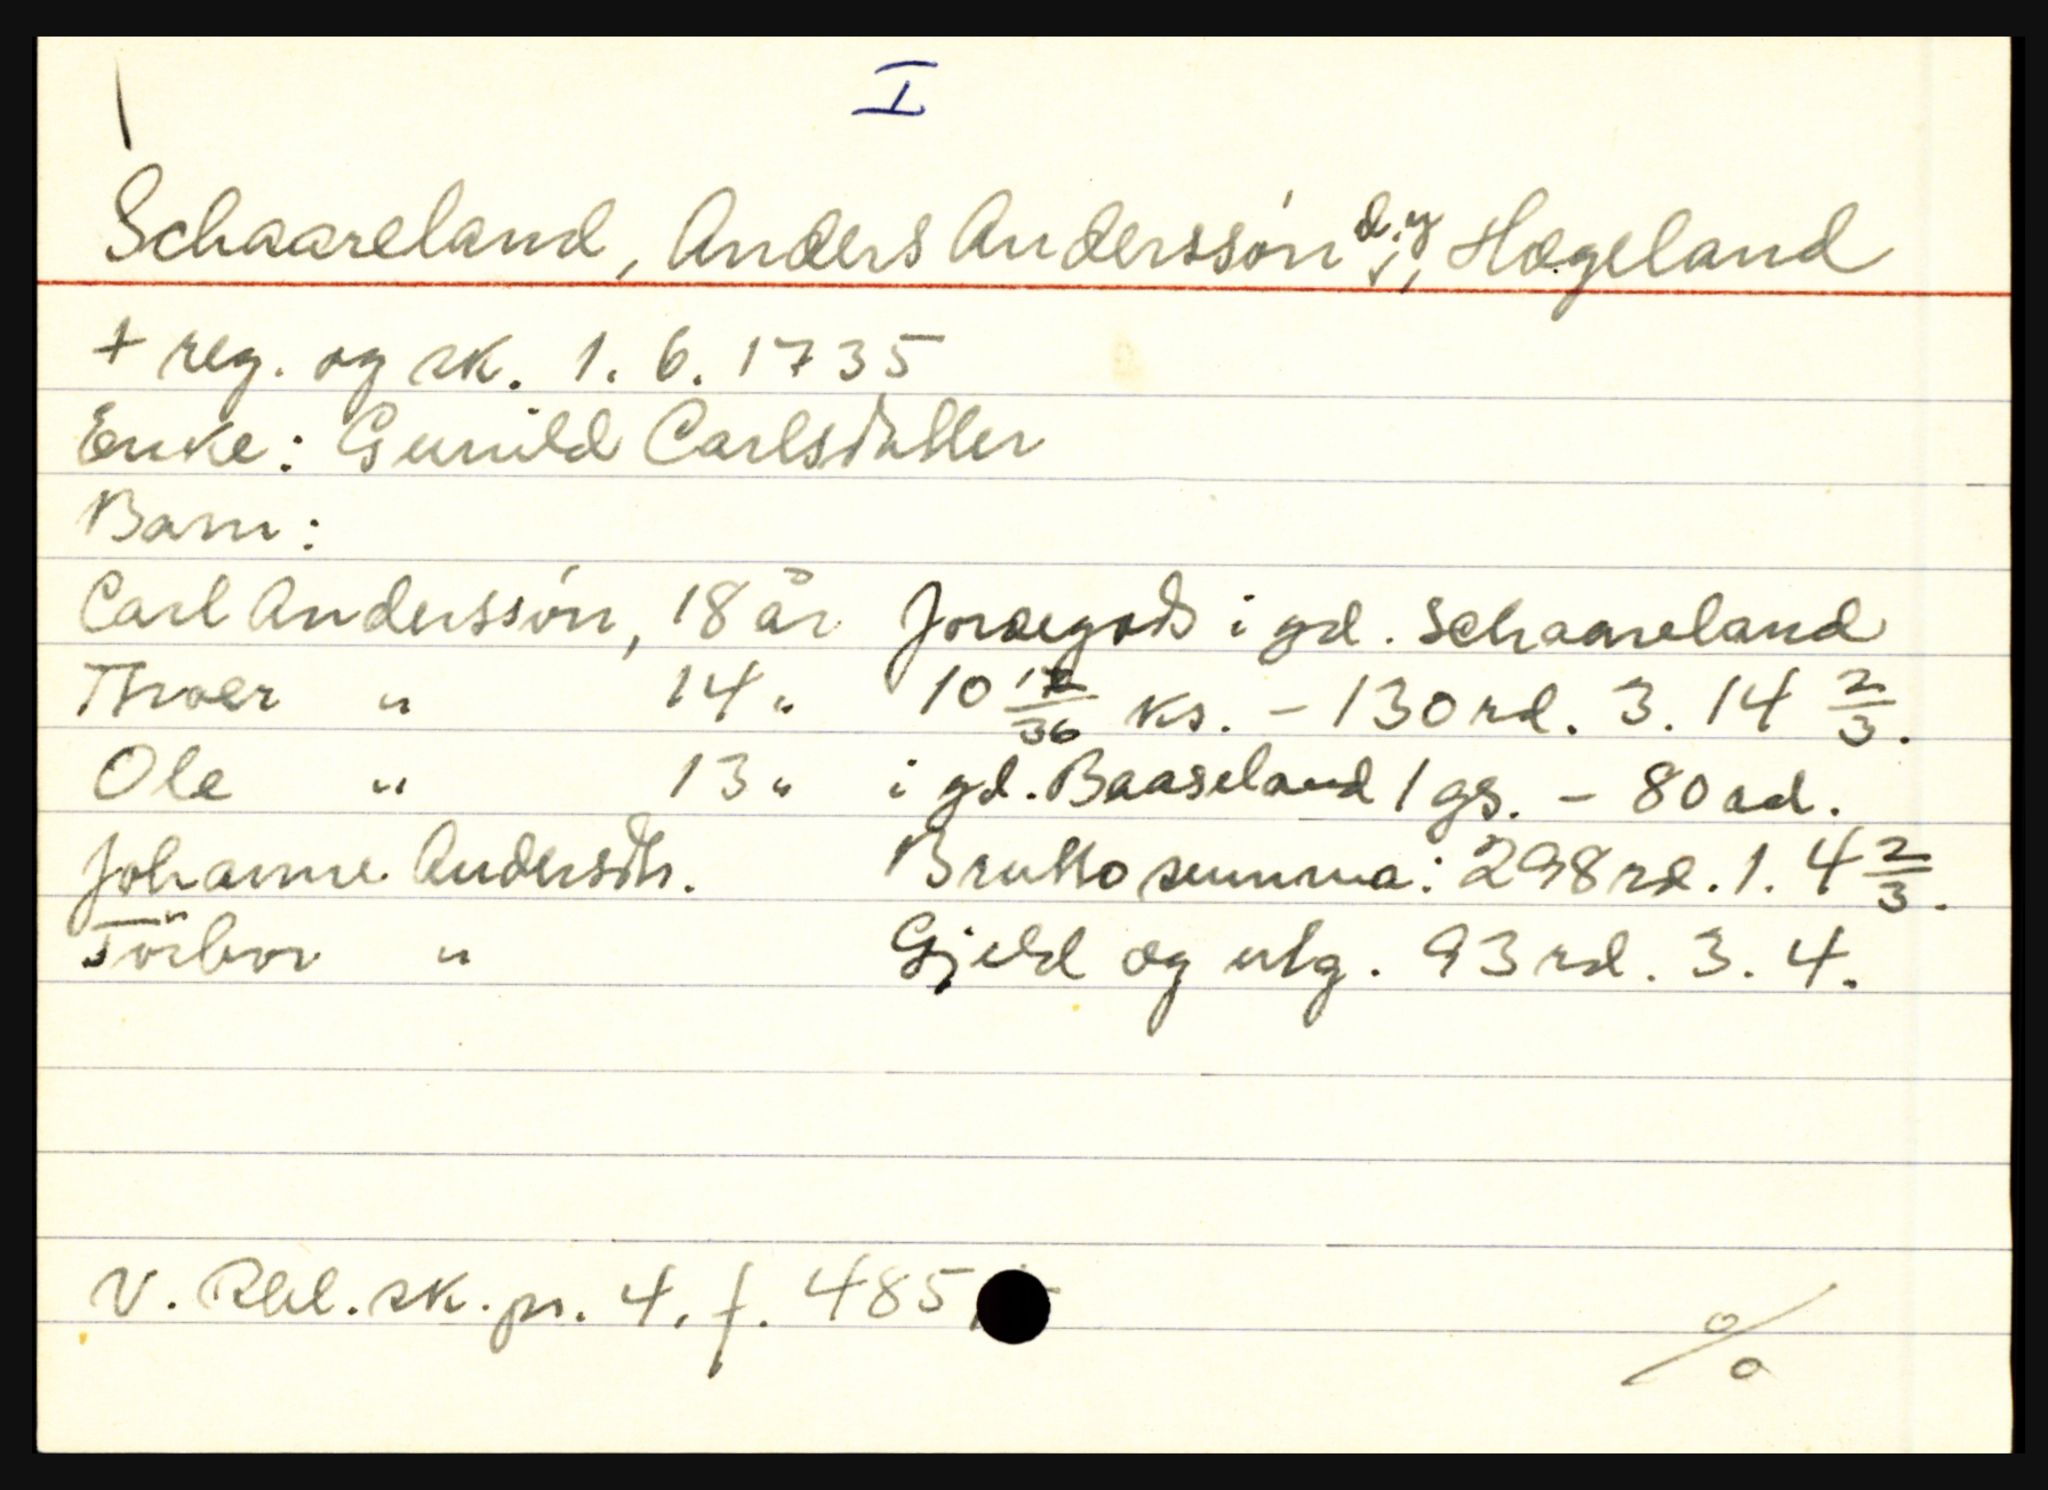 I
Schaareland, Anders Anderssón d.y., Hægeland
+ reg. og sk. 1. 6. 1735
Enke: Gunild Carlsdatter
Barn:
Carl Anderssón, 18 år Jordegods i gd. Schaareland
Troer " 14 " 10 12/36 ks. - 130 rd. 3. 14 2/3.
Ole " 13 " i gd. Baaseland 1 gs. - 80 rd.
Johanne Andersdtr. Brutto summa: 298 rd. 1. 4 2/3.
Törbor " Gjeld og utg. 93 rd. 3. 4.
V. Rbl. sk. pr. 4, f. 485